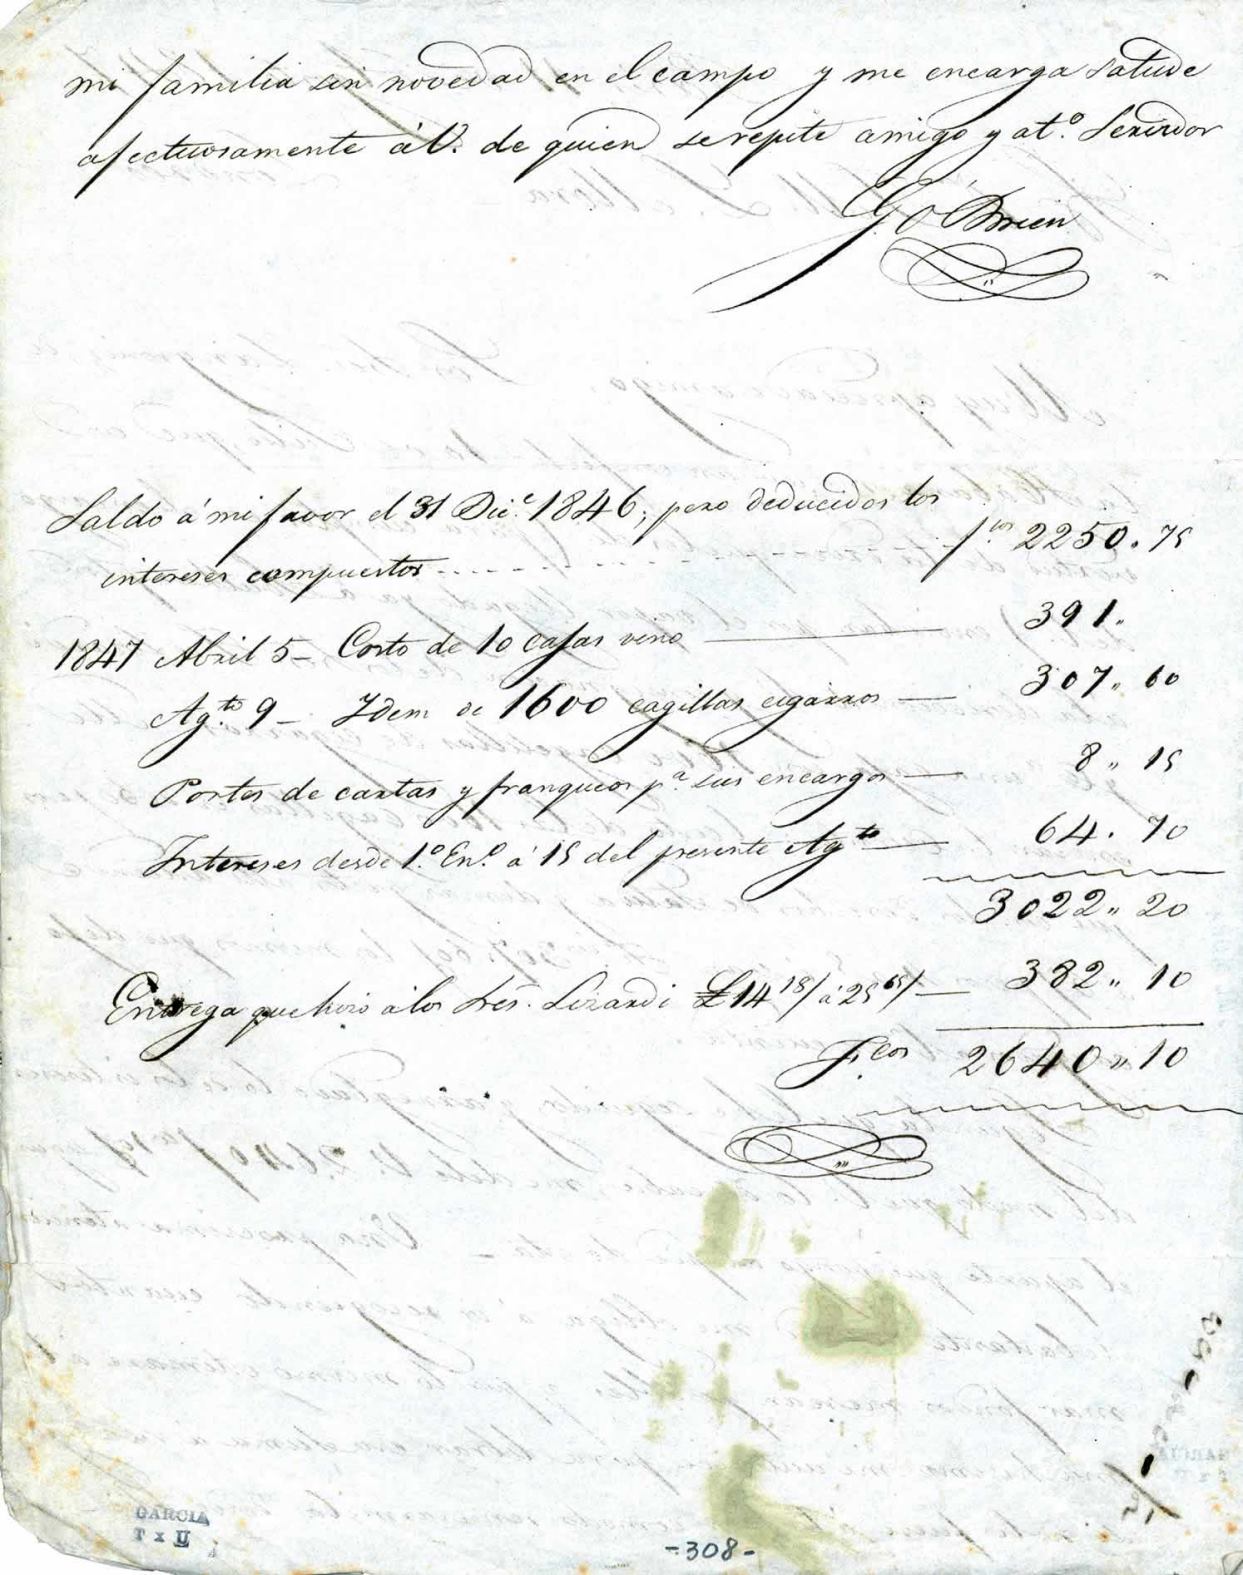 mi familia sin novedad en el campo y me encarga salude
afectuosamente á V. de quien se repite amigo y at.º Servidor
G. O Brien
Saldo á mi favor el 31 Dic.e 1846, pero deducidos los
intereses compuestos........... f.cos 2250.75
1847 Abril 5 — Costo de 10 cajas vino — 391"
Ag.to 9 — Idem de 1600 cagillas cigarros — 307" 60
Portes de cartas y franqueos p.a sus encargos — 8" 15
Intereses desde 1.º En.º á 15 del presente Ag.to — 64. 70
3022" 20
Entrega que hizo á los Sres. Lizardi £14 18/ á 25 65/ — 382" 10
F.cos 2640" 10
GARCIA
T x II
-308-